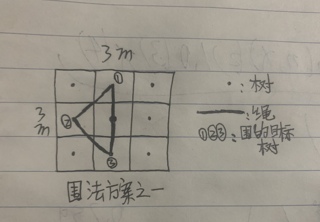 3m
3
m
①
②
③
·:树
—:绳
①②③:围的目标
树
围法方案之一